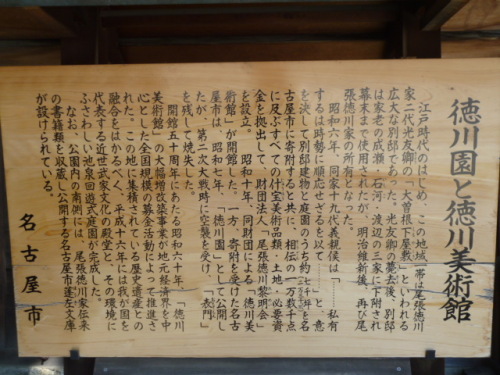 徳川園と徳川美術館
江戸時代のはじめ、この地域一帯は尾張徳川
家二代光友卿の「大曽根下屋敷」といわれる
広大な別邸であった。光友卿の薨去後、別邸
は家老の成瀬・石河・渡辺の三家に下附され
幕末まで使用されたが、明治維新後、再び尾
張徳川家の所有となった。
昭和六年、同家十九代義親侯は「……私有
するは時勢に順応せざるを以て……」と意
を決して別邸建物と庭園のうち約
を名
古屋市に寄附すると共に、相伝の一万数千点
に及ぶすべての什宝美術品類・土地・必要資
金を拠出して、財団法人「尾張徳川黎明会」
を設立。昭和十年、同財団による「徳川美
術館」が開館した。一方、寄附を受けた名古
屋市は、昭和七年、「徳川園」として公開し
たが、第二次大戦時に空襲を受け、「表門」
を残して焼失した。
開館五十周年にあたる昭和六十年、「徳川
美術館」の大幅増改築事業が地元経済界を中
心とした全国規模の募金活動によって推進さ
れた。この地に集積されている歴史遺産との
融合をはかるべく、平成十六年には我が国を
代表する近世武家文化の殿堂と、その環境に
ふさわしい池泉回遊式庭園が完成した。
なお、公園内の南側には、尾張徳川家伝来
の書籍類を収蔵し公開する名古屋市蓬左文庫
が設けられている。
名古屋市